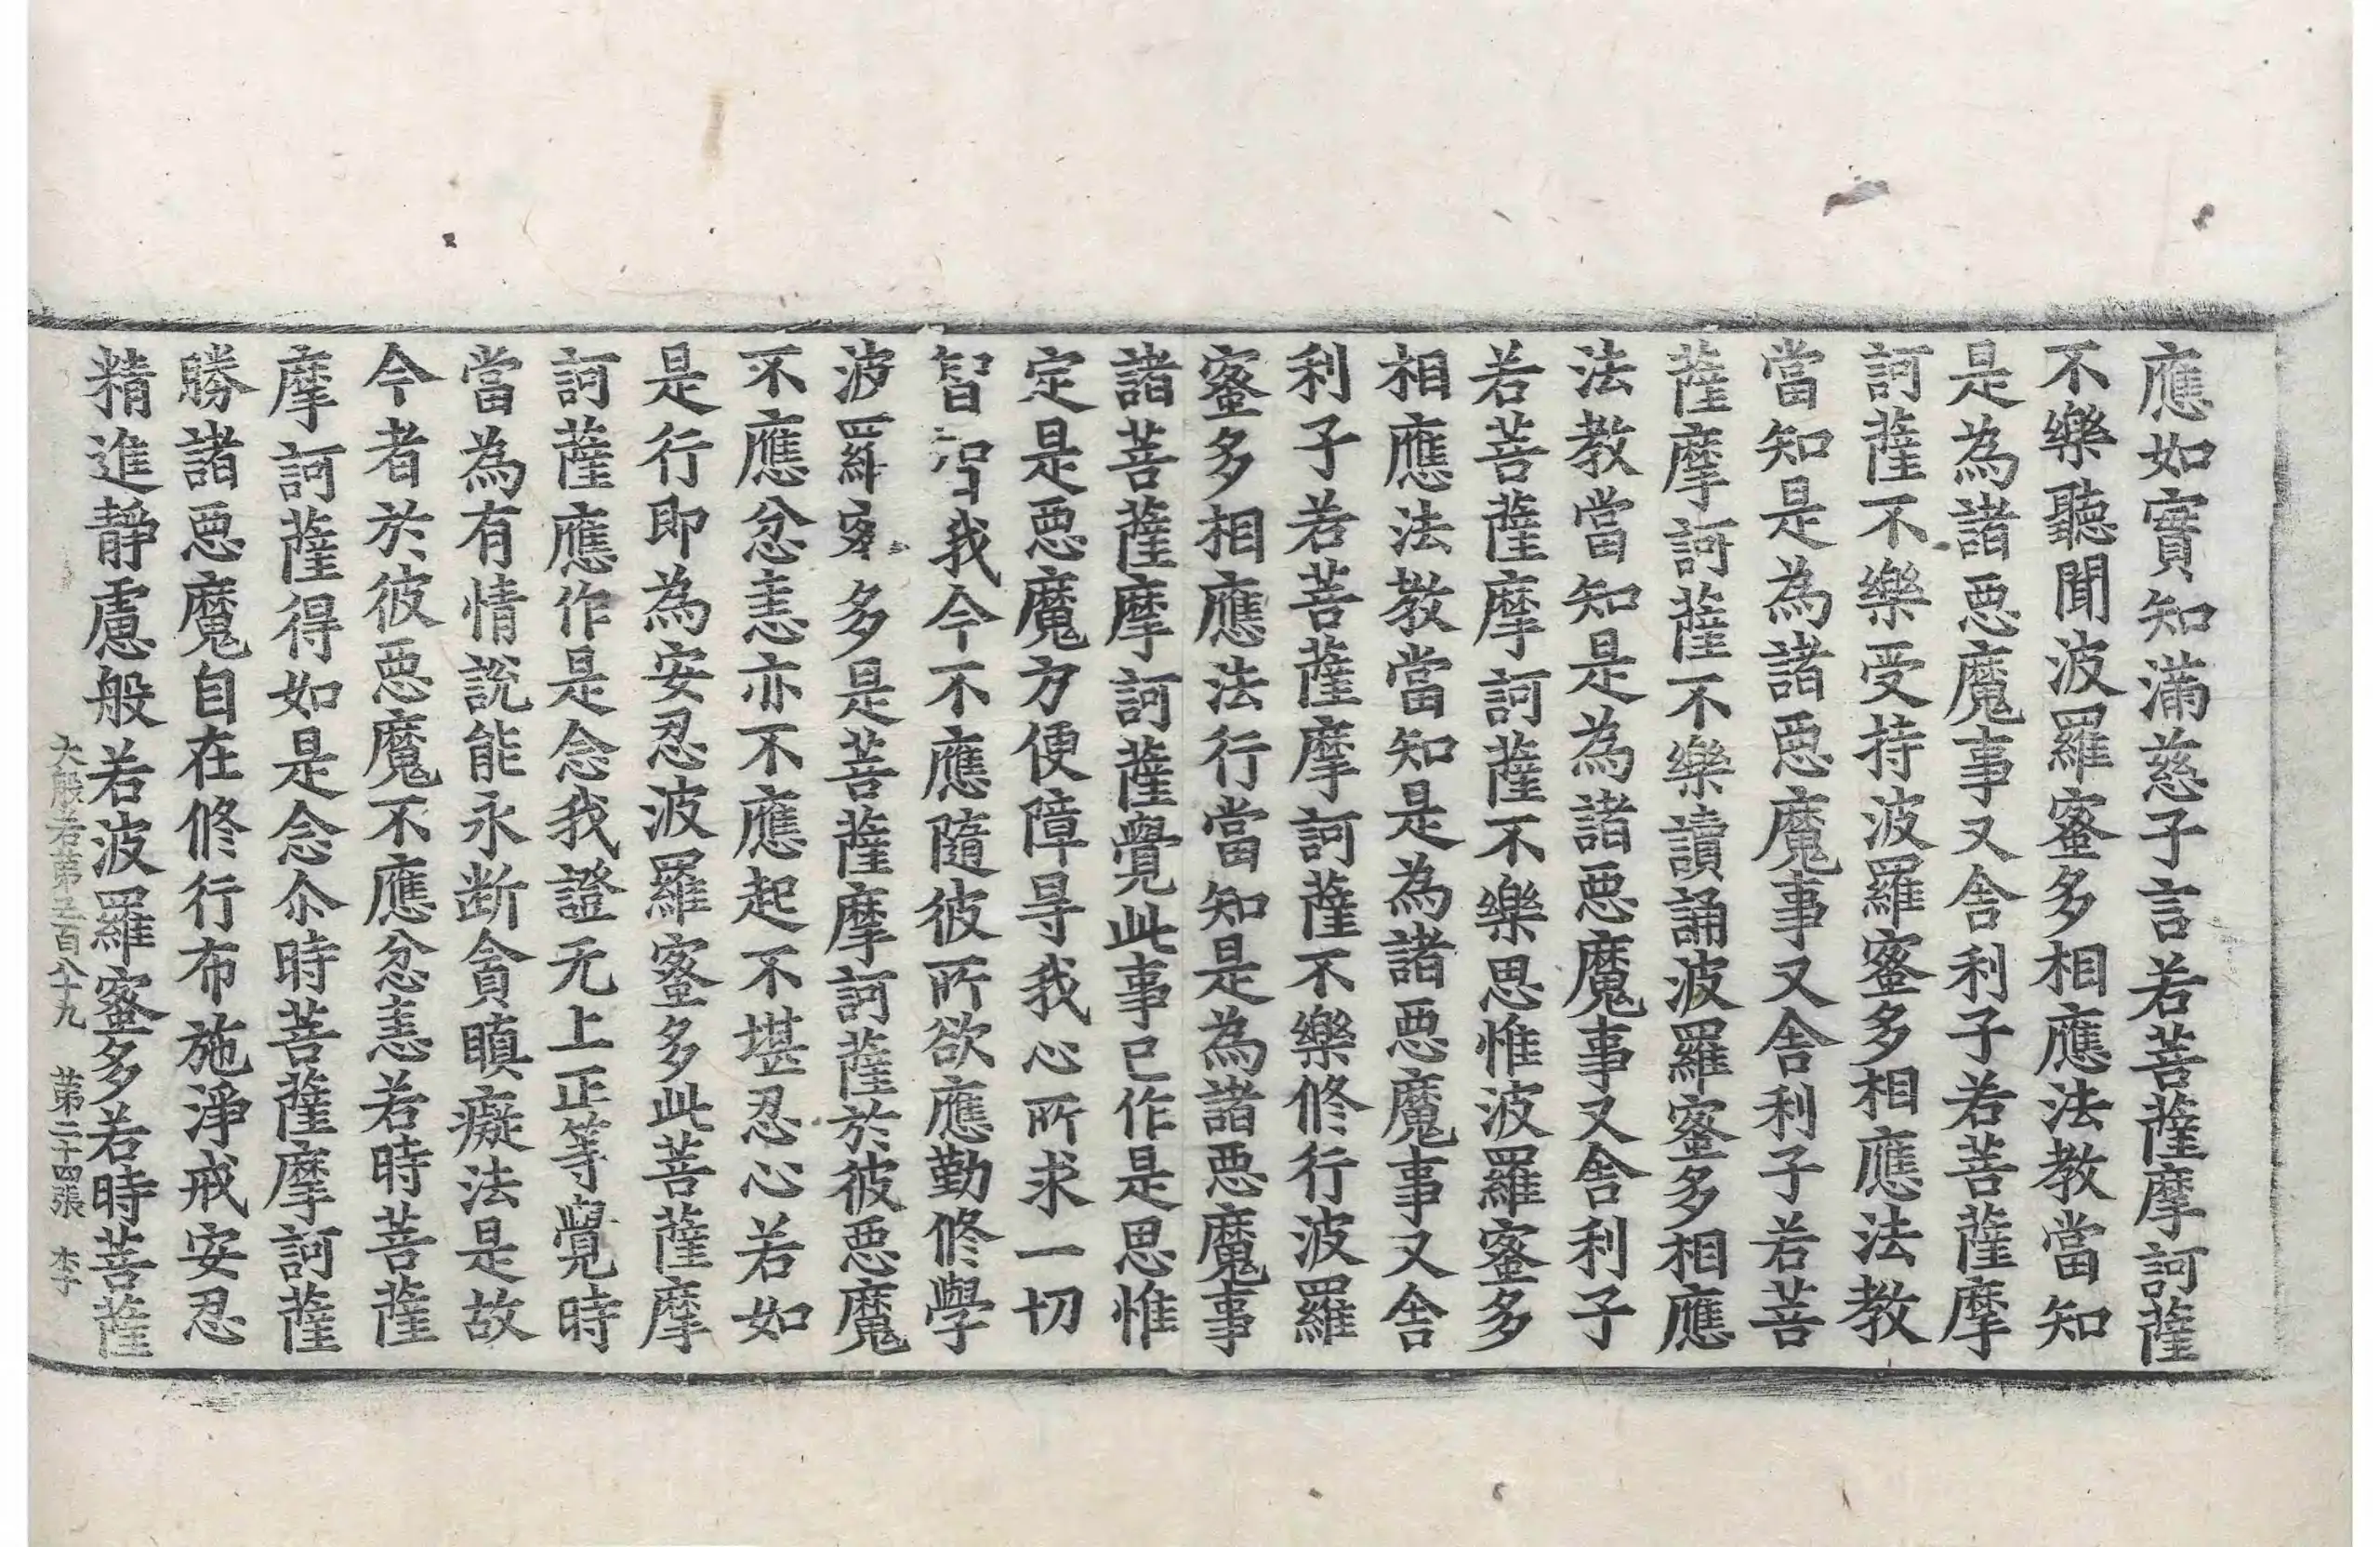 應如實知滿慈子言若菩薩摩訶薩
不樂聽聞波羅蜜多相應法教當知
是為諸惡魔事又舍利子若菩薩摩
訶薩不樂受持波羅蜜多相應法教
當知是為諸惡魔事又舍利子若菩
薩摩訶薩不樂讀誦波羅蜜多相應
法教當知是為諸惡魔事又舍利子
若菩薩摩訶薩不樂思惟波羅蜜多
相應法教當知是為諸惡魔事又舍
利子若菩薩摩訶薩不樂修行波羅
蜜多相應法行當知是為諸惡魔事
諸菩薩摩訶薩覺此事已作是思惟
定是惡魔方便障㝵我心所求一切
智智我今不應隨彼所欲應勤修學
波羅蜜多是菩薩摩訶薩於彼惡魔
不應忿恚亦不應起不堪忍心若如
是行即為安忍波羅蜜多此菩薩摩
訶薩應作是念我證无上正等覺時
當為有情說能永断貪瞋癡法是故
今者於彼惡魔不應忿恚若時菩薩
摩訶薩得如是念尒時菩薩摩訶薩
勝諸惡魔自在修行布施淨戒安忍
精進靜慮般若波羅蜜多若時菩薩
大般若第五百八十九　第二十四張　李